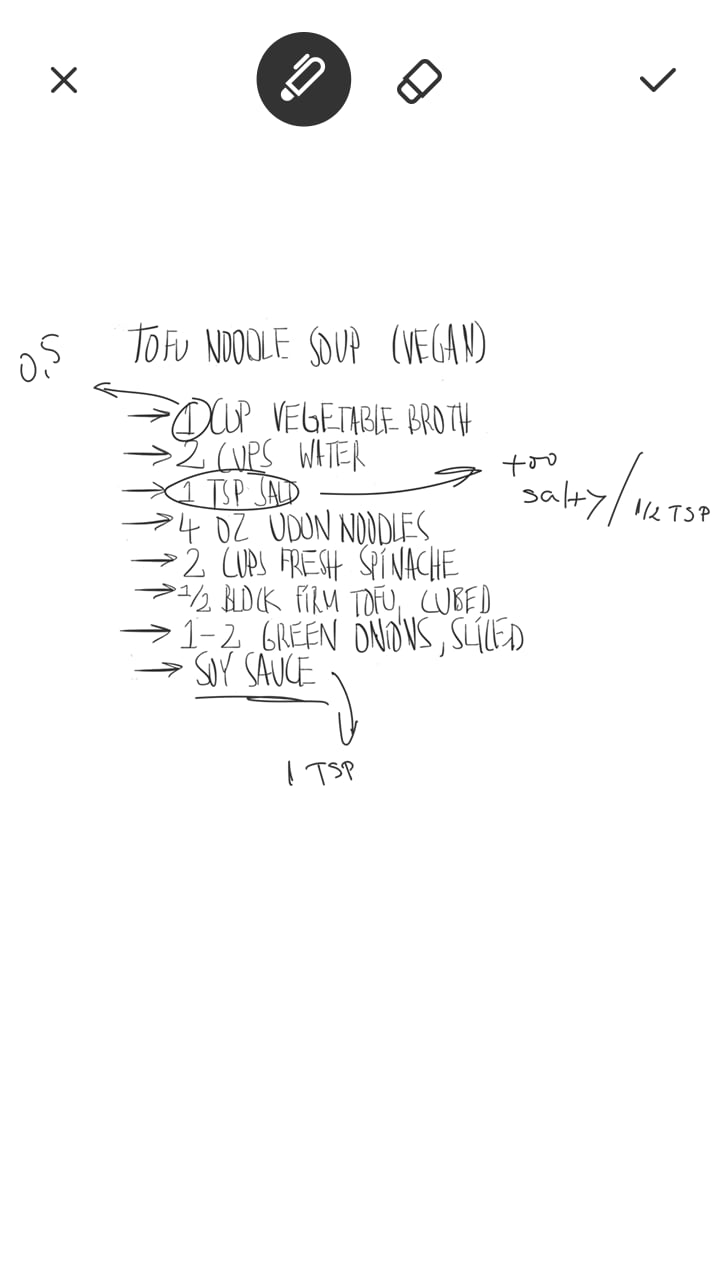 TOFU NOODLE SOUP (VEGAN)
0,5
→ 1 CUP VEGETABLE BROTH
→ 2 CUPS WATER
→ 1 TSP SALT
too
salty / 1/2 TSP
→ 4 OZ UDON NOODLES
→ 2 CUPS FRESH SPINACHE
→ 1/2 BLOCK FIRM TOFU, CUBED
→ 1-2 GREEN ONIONS, SLICED
→ SOY SAUCE
1 TSP